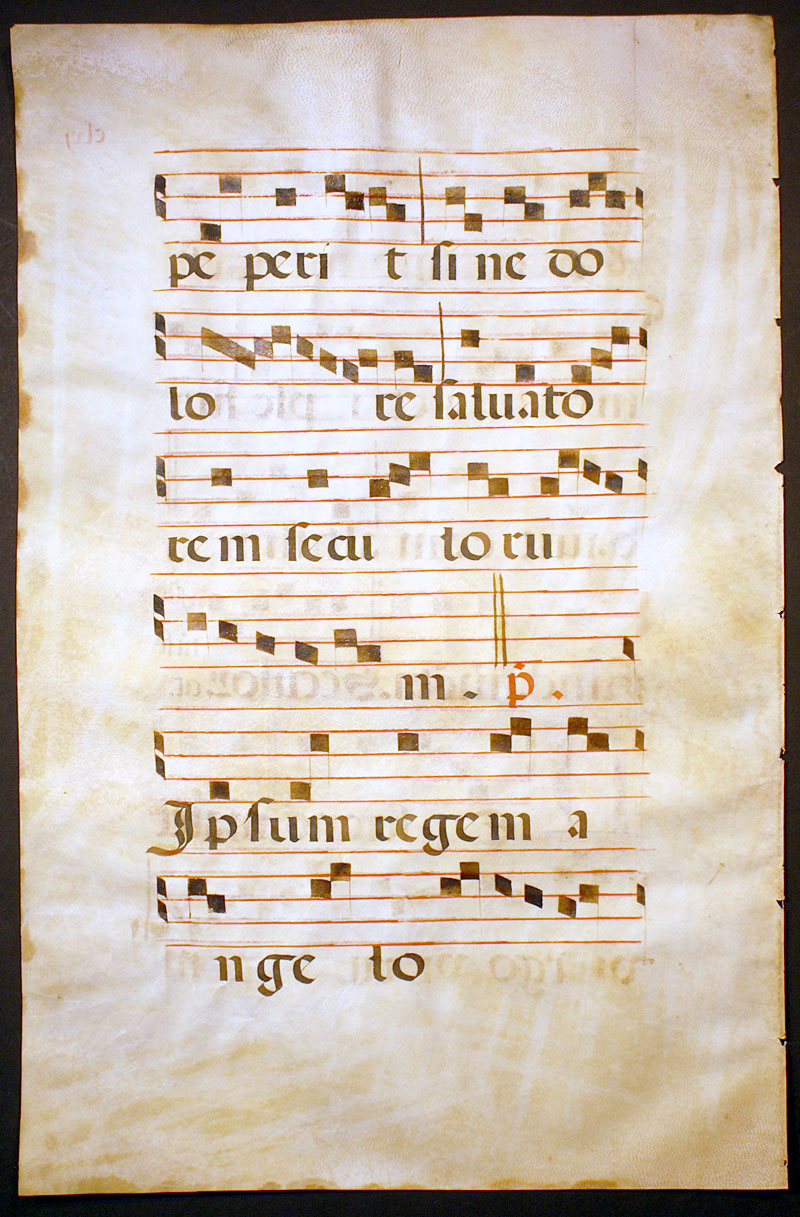 pe peri t si ne do
lo re saluato
rem secu lo ru
m . p̄ .
Ipsum regem a
n ge lo